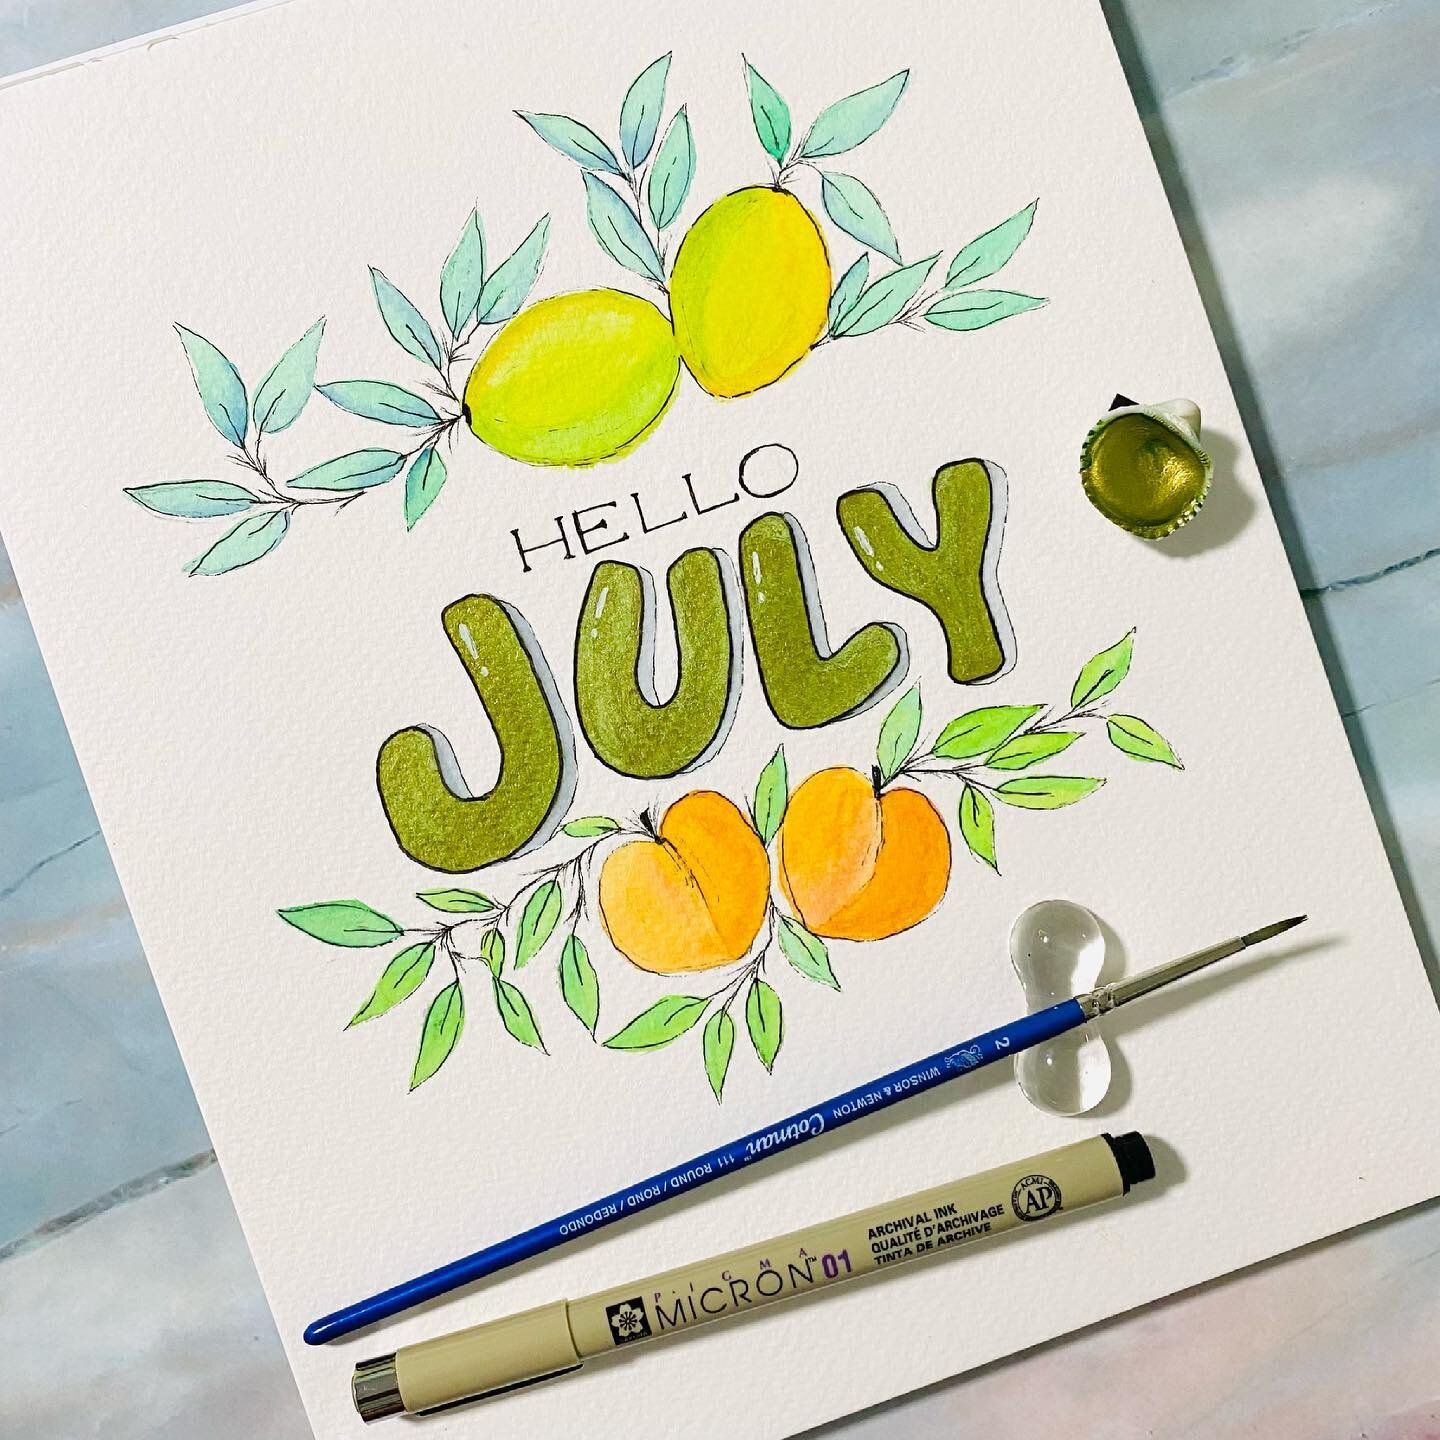 HELLO
JULY
2 WINSOR & NEWTON Cotman™ 111 ROUND / ROND / REDONDO
PIGMA
MICRON™ 01
ARCHIVAL INK
QUALITÉ D'ARCHIVAGE
TINTA DE ARCHIVE
ACMI
AP